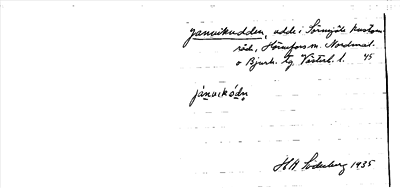 Janvikudden, udde i Sörmjöle kustom
råd, Hörnefors sn. Nordmal.
o Bjurh. tg Västerb. l. 45
jànvikódn̥
H. H. Söderberg 1935